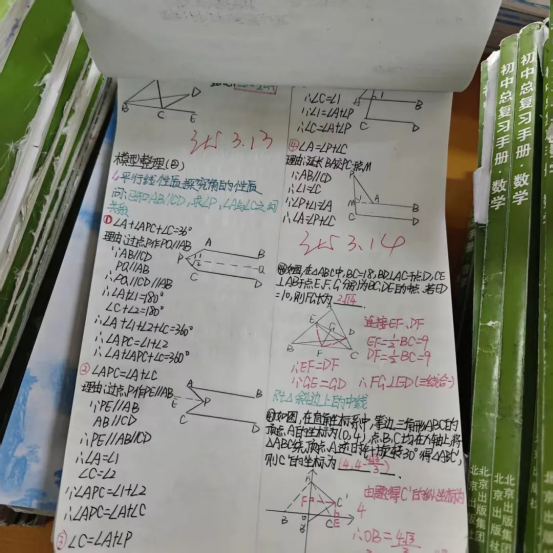 模型整理(四)
平行线性质探究角的性质
问:已知AB//CD,求∠P,∠A与∠C之间
① ∠A+∠APC+∠C=36°
理由:过点P作PQ//AB
∵AB//CD
PQ//AB
∴PQ//CD//AB
∴∠A+∠1=180°
∠C+∠2=180°
∴∠A+∠1+∠2+∠C=360°
∵∠APC=∠1+∠2
∴∠A+∠APC+∠C=360°
② ∠APC=∠A+∠C
理由:过点P作PE//AB
∵PE//AB
AB//CD
∴PE//AB//CD
∴∠A=∠1
∠C=∠2
∵∠APC=∠1+∠2
∴∠APC=∠A+∠C
③ ∠C=∠A+∠P
3.13
∴∠C=∠1
∵∠1=∠A+∠P
∴∠C=∠A+∠P
④ ∠A=∠P+∠C
理由:延长BA交PC于点M
∵AB//CD
∴∠1=∠C
∵∠P+∠1=∠A
∴∠A=∠P+∠C
3.14
如图,在△ABC中,BC=18,BD⊥AC于点D,CE
⊥AB于点E,F,G分别为BC,DE的中点,若ED
=10,则FG长为 2√14
连接EF、DF
EF=½BC=9
DF=½BC=9
∴EF=DF
∵GE=GD ∴FG⊥ED(三线合一)
Rt△斜边上的中线
如图,在直角坐标系中,等边三角形ABC的
顶点A的坐标为(0,4),点B,C均在x轴上,将
△ABC绕顶点A逆时针旋转30°得△AB'C',
则C'的坐标为
4
初中总复习手册·数学
初中总复习手册·数学
初中总复习手册·数学
北京出版集团
北京出版社